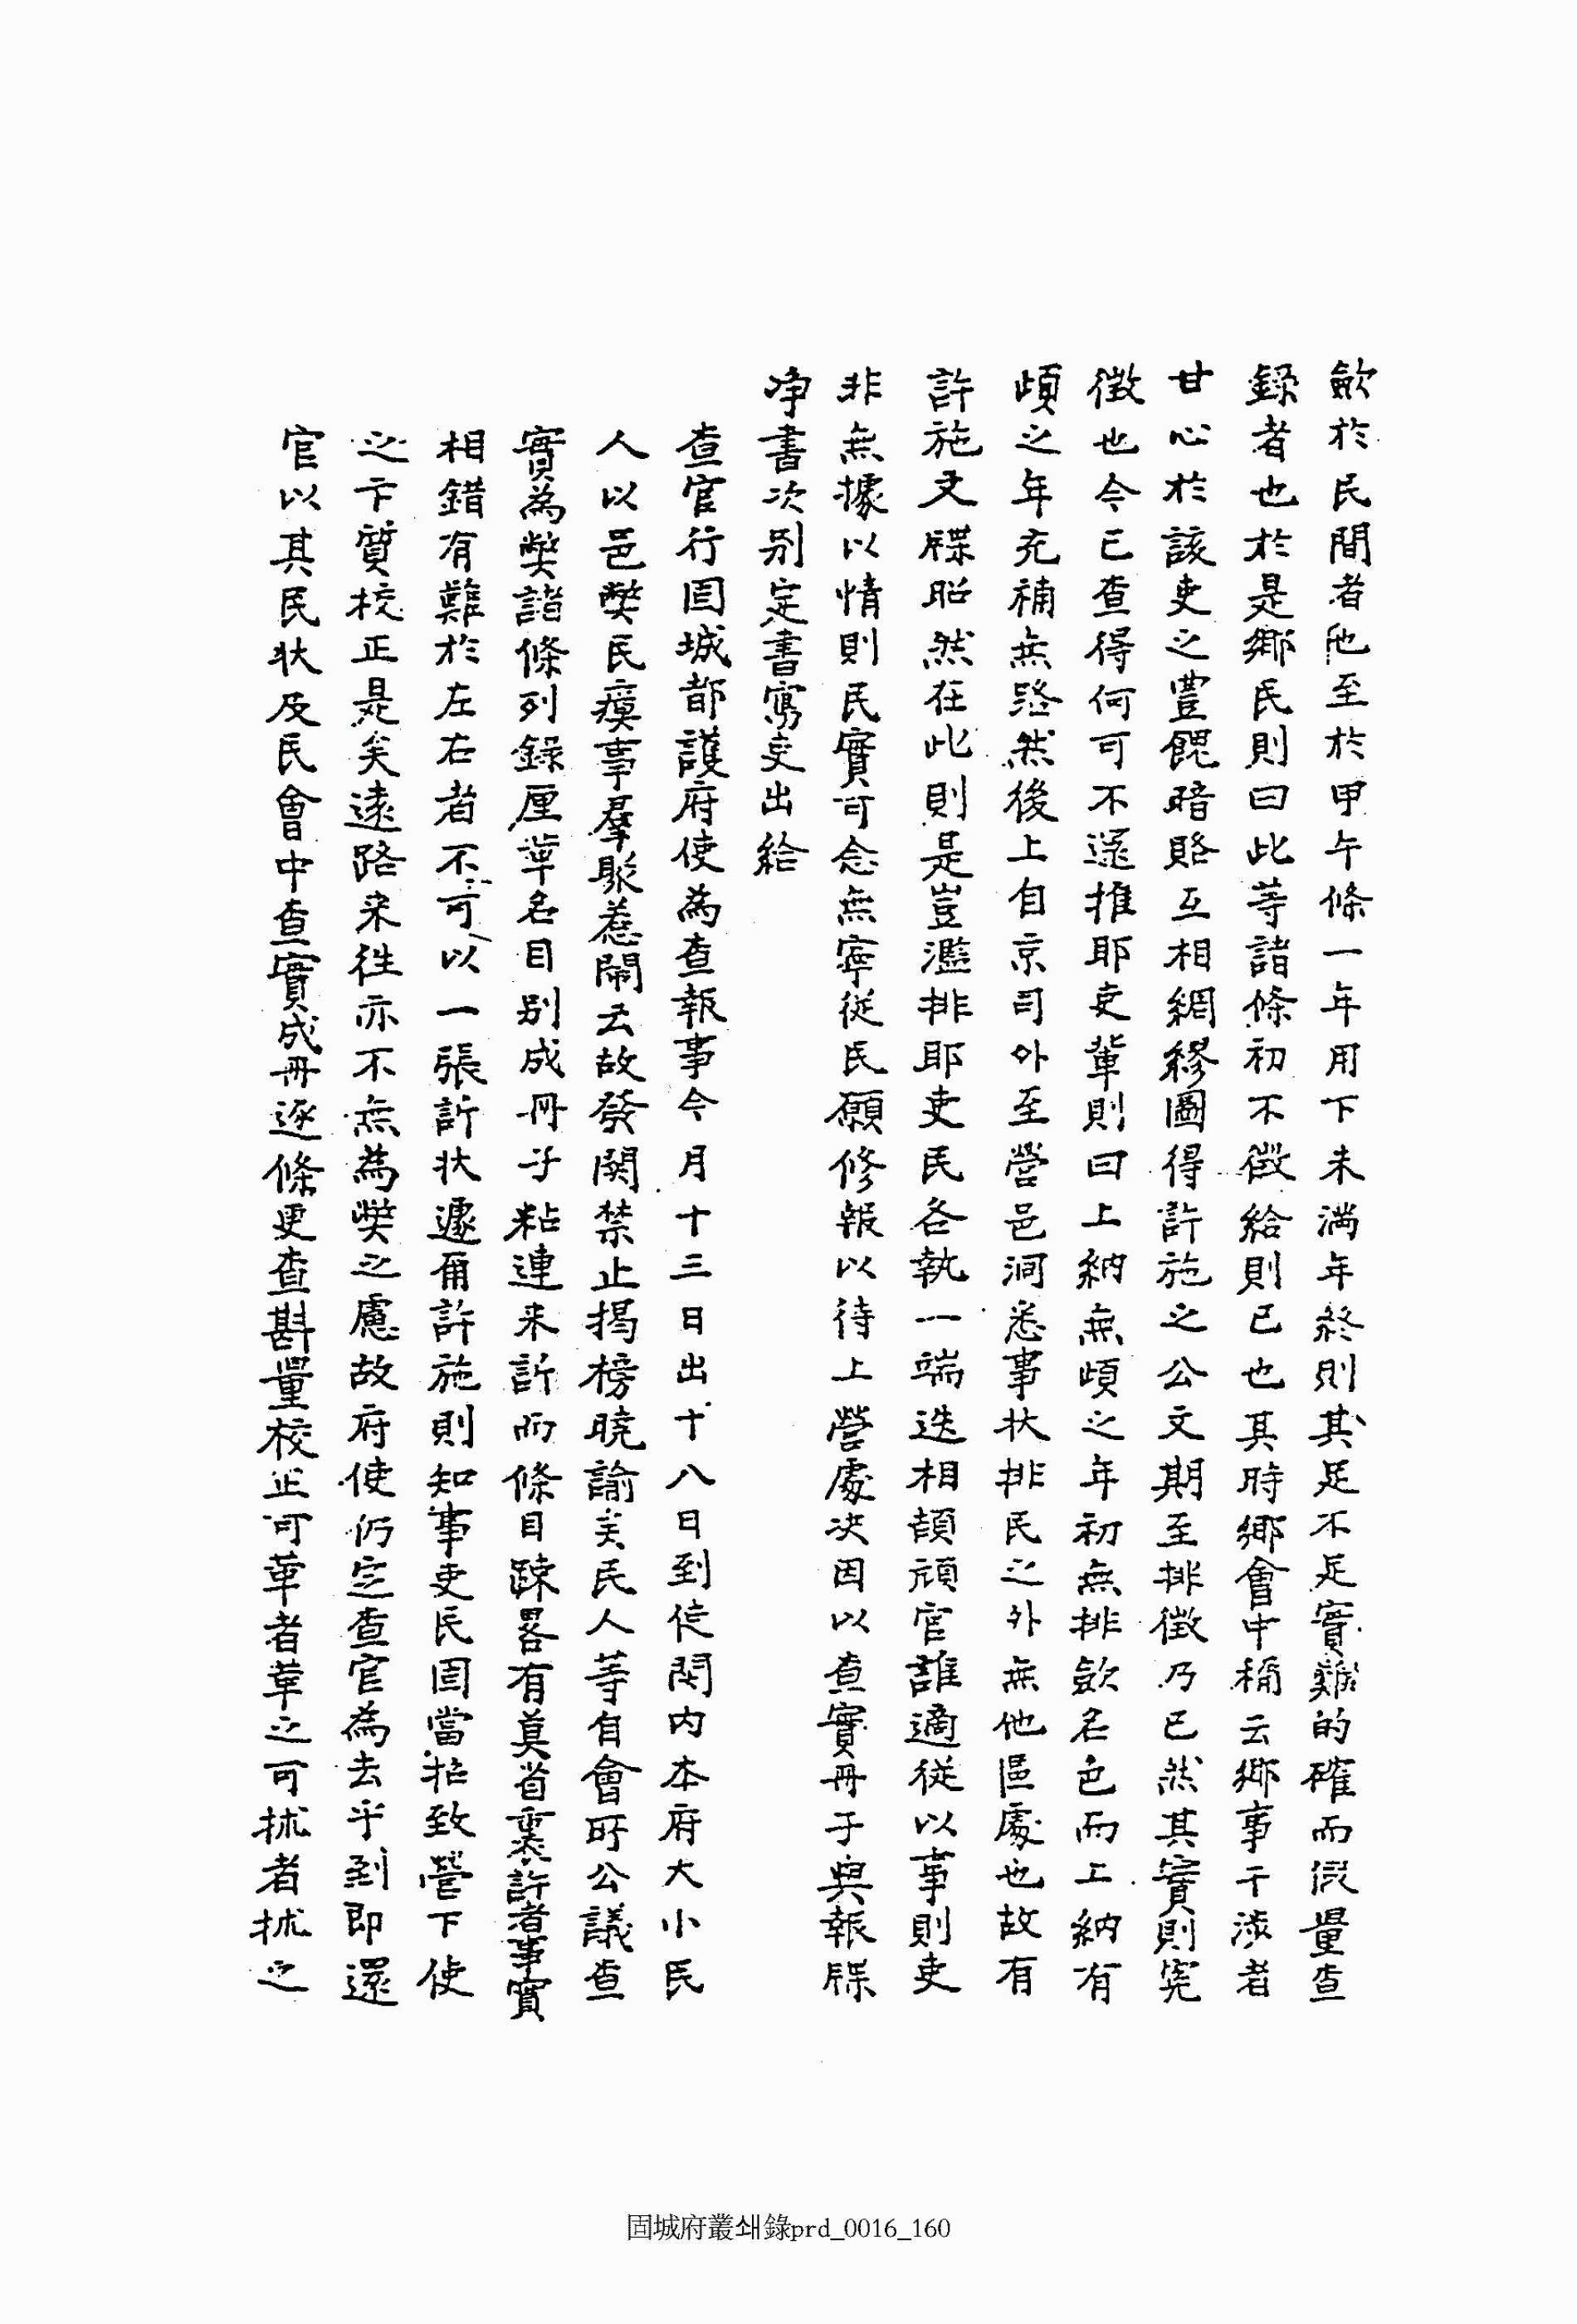 歛於民間者也至於甲午條一年用下未滿年終則其足不足實難的確而假量查
錄者也於是鄕民則曰此等諸條初不徵給則已也其時鄕會中稱云鄕事干涉者
甘心於該吏之豊餽暗賂互相綢繆圖得許施之公文期至排徵乃已然其實則寃
徵也今已查得何可不還推耶吏輩則曰上納無頉之年初無排歛名色而上納有
頉之年充補無路然後上自京司外至營邑洞悉事狀排民之外無他區處也故有
許施文牒昭然在此則是豈濫排耶吏民各執一端迭相頡頏官誰適從以事則吏
非無據以情則民實可念無寧從民願修報以待上營處决因以查實冊子與報牒
净書次別定書寫吏出給
查官行固城都護府使為查報事今月十三日出十八日到使関內本府大小民
人以邑弊民瘼事羣聚惹鬧云故發関禁止揭榜曉諭矣民人等自會所公議查
實為弊諸條列錄厘革名目別成冊子粘連来訴而條目踈畧有莫省裏許者事實
相錯有難於左右者不可以一張訴狀遽爾許施則知事吏民固當招致營下使
之卞質校正是矣遠路来往亦不無為弊之慮故府使仍定查官為去乎到即還
官以其民狀及民會中查實成冊逐條更查斟量校正可革者革之可捄者捄之
固城府叢쇄錄prd_0016_160